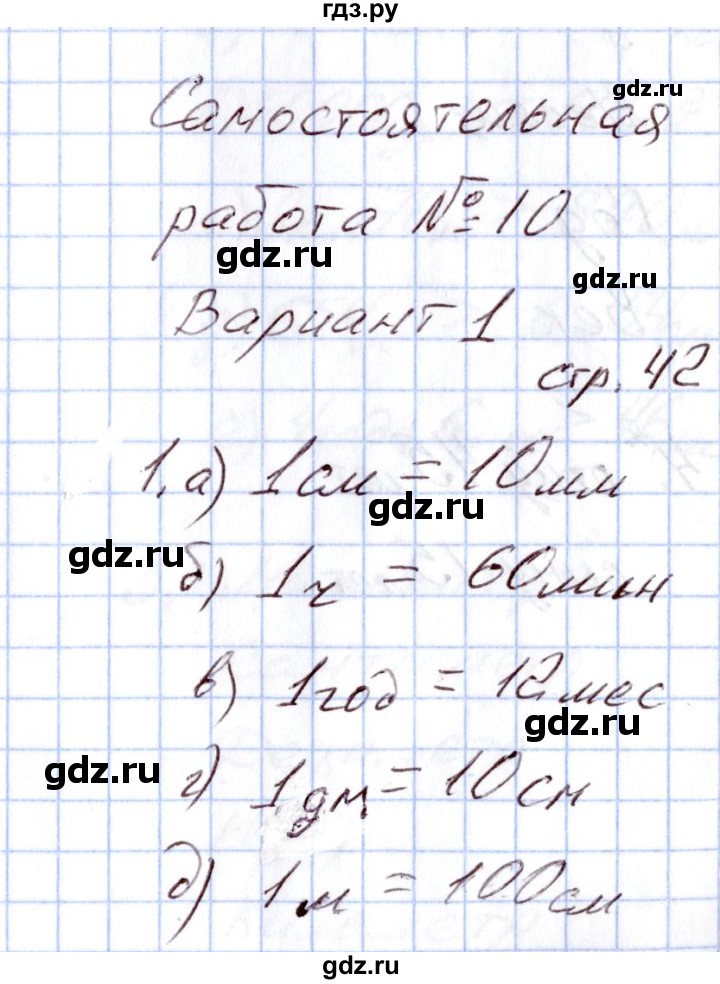 гдз.ру
gdz.ru
Самостоятельная
работа № 10
gdz.ru
gdz.ru
Вариант 1
стр. 42
1. а) 1 см = 10 мм
gdz.ru
gdz.ru
б) 1 ч = 60 мин
в) 1 год = 12 мес
gdz.ru
gdz.ru
г) 1 дм = 10 см
д) 1 м = 100 см
gdz.ru